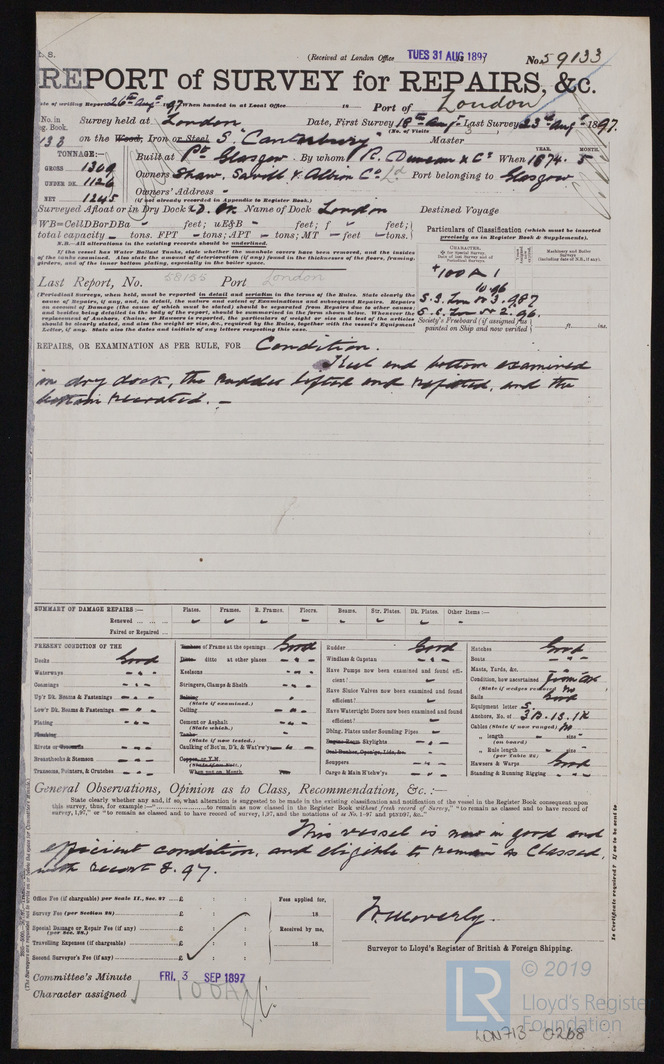 (Received at London Office TUES 31 AUG 1897 No. 59133
REPORT of SURVEY for REPAIRS, &c.
Date of writing Report 26th Augt 1897 When handed in at Local Office 18 Port of London
No. in Survey held at London Date, First Survey 18th Augt Last Survey 23rd Augt 1897.
Reg. Book. (No. of Visits 3)
138 on the Wood, Iron or Steel S. "Canterbury" Master
TONNAGE:— Built at Pt Glasgow By whom R. Duncan & Co When 1874. 5
YEAR. MONTH.
GROSS 1309 Owners Shaw, Savill & Albion Co Ld Port belonging to Glasgow
UNDER DK. 1126 Owners' Address -
NET 1245 (if not already recorded in Appendix to Register Book.)
Surveyed Afloat or in Dry Dock D. Dk Name of Dock London Destined Voyage
WB=CellDBorDBa feet; uE&B - feet; f feet;
total capacity - tons. FPT - tons; APT - tons; MT - feet - tons.
N.B.—All alterations in the existing records should be underlined.
If the vessel has Water Ballast Tanks, state whether the manhole covers have been removed, and the insides
of the tanks examined. Also state the amount of deterioration (if any) found in the thicknesses of the floors, framing,
girders, and of the inner bottom plating, especially in the boiler space.
Particulars of Classification (which must be inserted
precisely as in Register Book & Supplements).
CHARACTER.
+100 A 1
10 96
S.S. Lon No 3. 9.87
S.S. Lon No 2. 96.
Society's Freeboard (if assigned) as
painted on Ship and now verified ft. ins.
Last Report, No. 58135 Port London
(Periodical Surveys, when held, must be reported in detail and seriatim in the terms of the Rules. State clearly the
cause of Repairs, if any, and, in detail, the nature and extent of Examinations and subsequent Repairs. Repairs
on account of Damage (the cause of which must be stated) should be separated from Repairs due to other causes;
and besides being detailed in the body of the report, should be summarised in the form shown below. Whenever the
replacement of Anchors, Chains, or Hawsers is reported, the particulars of weight or size and test of the articles
should be clearly stated, and also the weight or size, &c., required by the Rules, together with the vessel's Equipment
Letter, if any. State also the dates and initials of any letters respecting this case.
REPAIRS, OR EXAMINATION AS PER RULE, FOR Condition.
Keel and bottom examined
in dry dock, the rudder lifted and refitted, and the
bottom recoated. -
SUMMARY OF DAMAGE REPAIRS:— Plates. Frames. R. Frames. Floors. Beams. Str. Plates. Dk. Plates. Other Items:—
Renewed
Faired or Repaired
PRESENT CONDITION OF THE
Decks Good
Waterways
Coamings
Up'r Dk. Beams & Fastenings
Low'r Dk. Beams & Fastenings
Plating
Planking
Rivets or Treenails
Breasthooks & Stemson
Transoms, Pointers, & Crutches
Timbers of Frame at the openings Good
Ditto ditto at other places
Keelsons
Stringers, Clamps & Shelfs
Salting
(State if examined.)
Ceiling
Cement or Asphalt
(State which.)
Tanks
(State if now tested.)
Caulking of Bot'm, D'k, & Wat'rw'ys
Copper, or Y.M.
(State if on Felt.)
When put on, Month, Year
Rudder Good
Windlass & Capstan
Have Pumps now been examined and found effi-
cient?
Have Sluice Valves now been examined and found
efficient?
Have Watertight Doors now been examined and found
efficient?
Dbling. Plates under Sounding Pipes
Engine Room Skylights
Coal Bunker, Openings, Lids, &c.
Scuppers
Cargo & Main H'tchw'ys
Hatches Good
Boats
Masts, Yards, &c.
Condition, how ascertained from Dk
(State if wedges removed) No
Sails Good
Equipment letter S.
Anchors, No. of 3 B. 1 S. 1 K
Cables (State if now ranged) No
„ length size
(on board)
„ Rule length size
(per Table 22)
Hawsers & Warps Good
Standing & Running Rigging
General Observations, Opinion as to Class, Recommendation, &c.:—
State clearly whether any, and if so, what alteration is suggested to be made in the existing classification and notification of the vessel in the Register Book consequent upon
this survey, thus, for example:—" to remain as now classed in the Register Book without fresh record of Survey," "to remain as classed and to have record of
survey, 1,97," or "to remain as classed and to have record of survey, 1,97, and the notations of ss No. 1-97 and ptND97, &c."
This vessel is now in good and
efficient condition, and eligible to remain as classed,
with record 8.97.
Office Fee (if chargeable) per Scale II., Sec. 27 £ : : Fees applied for,
Survey Fee (per Section 28) £ : : 18
Special Damage or Repair Fee (if any) £ : : Received by me,
(per Sec. 28.)
Travelling Expenses (if chargeable) £ : : 18
Second Surveyor's Fee (if any) £ : :
Surveyor to Lloyd's Register of British & Foreign Shipping.
Committee's Minute FRI. 3 SEP 1897
Character assigned 100A1
Is Certificate required? If so to be sent to
LR © 2019
Lloyd's Register
Foundation
LDN713-0268